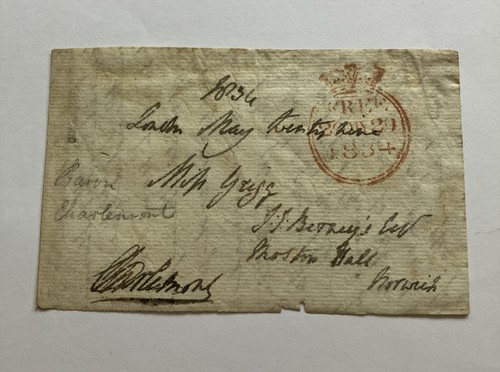 1834
London May twenty nine
Miss Grigg
T. T. Berney's Esq
Moston Hall
Norwich
Charlemont
Baron
Charlemont
FREE
29 MY 29
1834